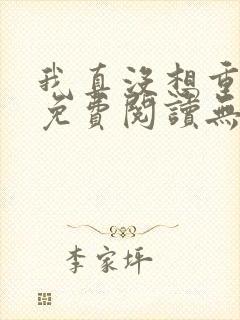 我真沒想重
免費閱讀無
李家坪